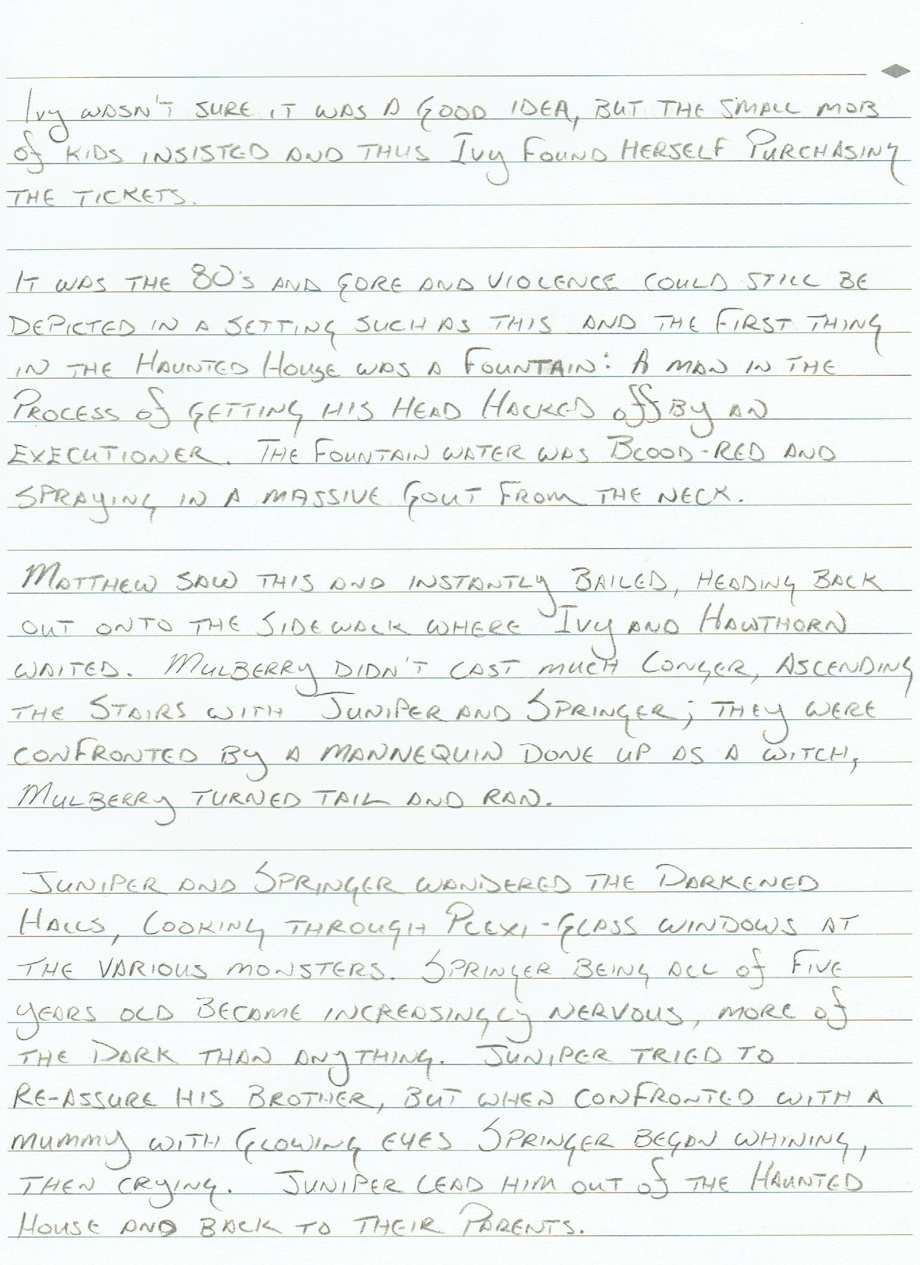 Ivy wasn't sure it was a good idea, but the small mob
of kids insisted and thus Ivy found herself purchasing
the tickets.
It was the 80's and gore and violence could still be
depicted in a setting such as this and the first thing
in the Haunted House was a fountain: A man in the
process of getting his head hacked off by an
executioner. The fountain water was blood-red and
spraying in a massive gout from the neck.
Matthew saw this and instantly bailed, heading back
out onto the sidewalk where Ivy and Hawthorn
waited. Mulberry didn't last much longer, ascending
the stairs with Juniper and Springer; they were
confronted by a mannequin done up as a witch,
Mulberry turned tail and ran.
Juniper and Springer wandered the darkened
halls, looking through plexi-glass windows at
the various monsters. Springer being all of five
years old became increasingly nervous, more of
the dark than anything. Juniper tried to
re-assure his brother, but when confronted with a
mummy with glowing eyes Springer began whining,
then crying. Juniper lead him out of the Haunted
House and back to their parents.